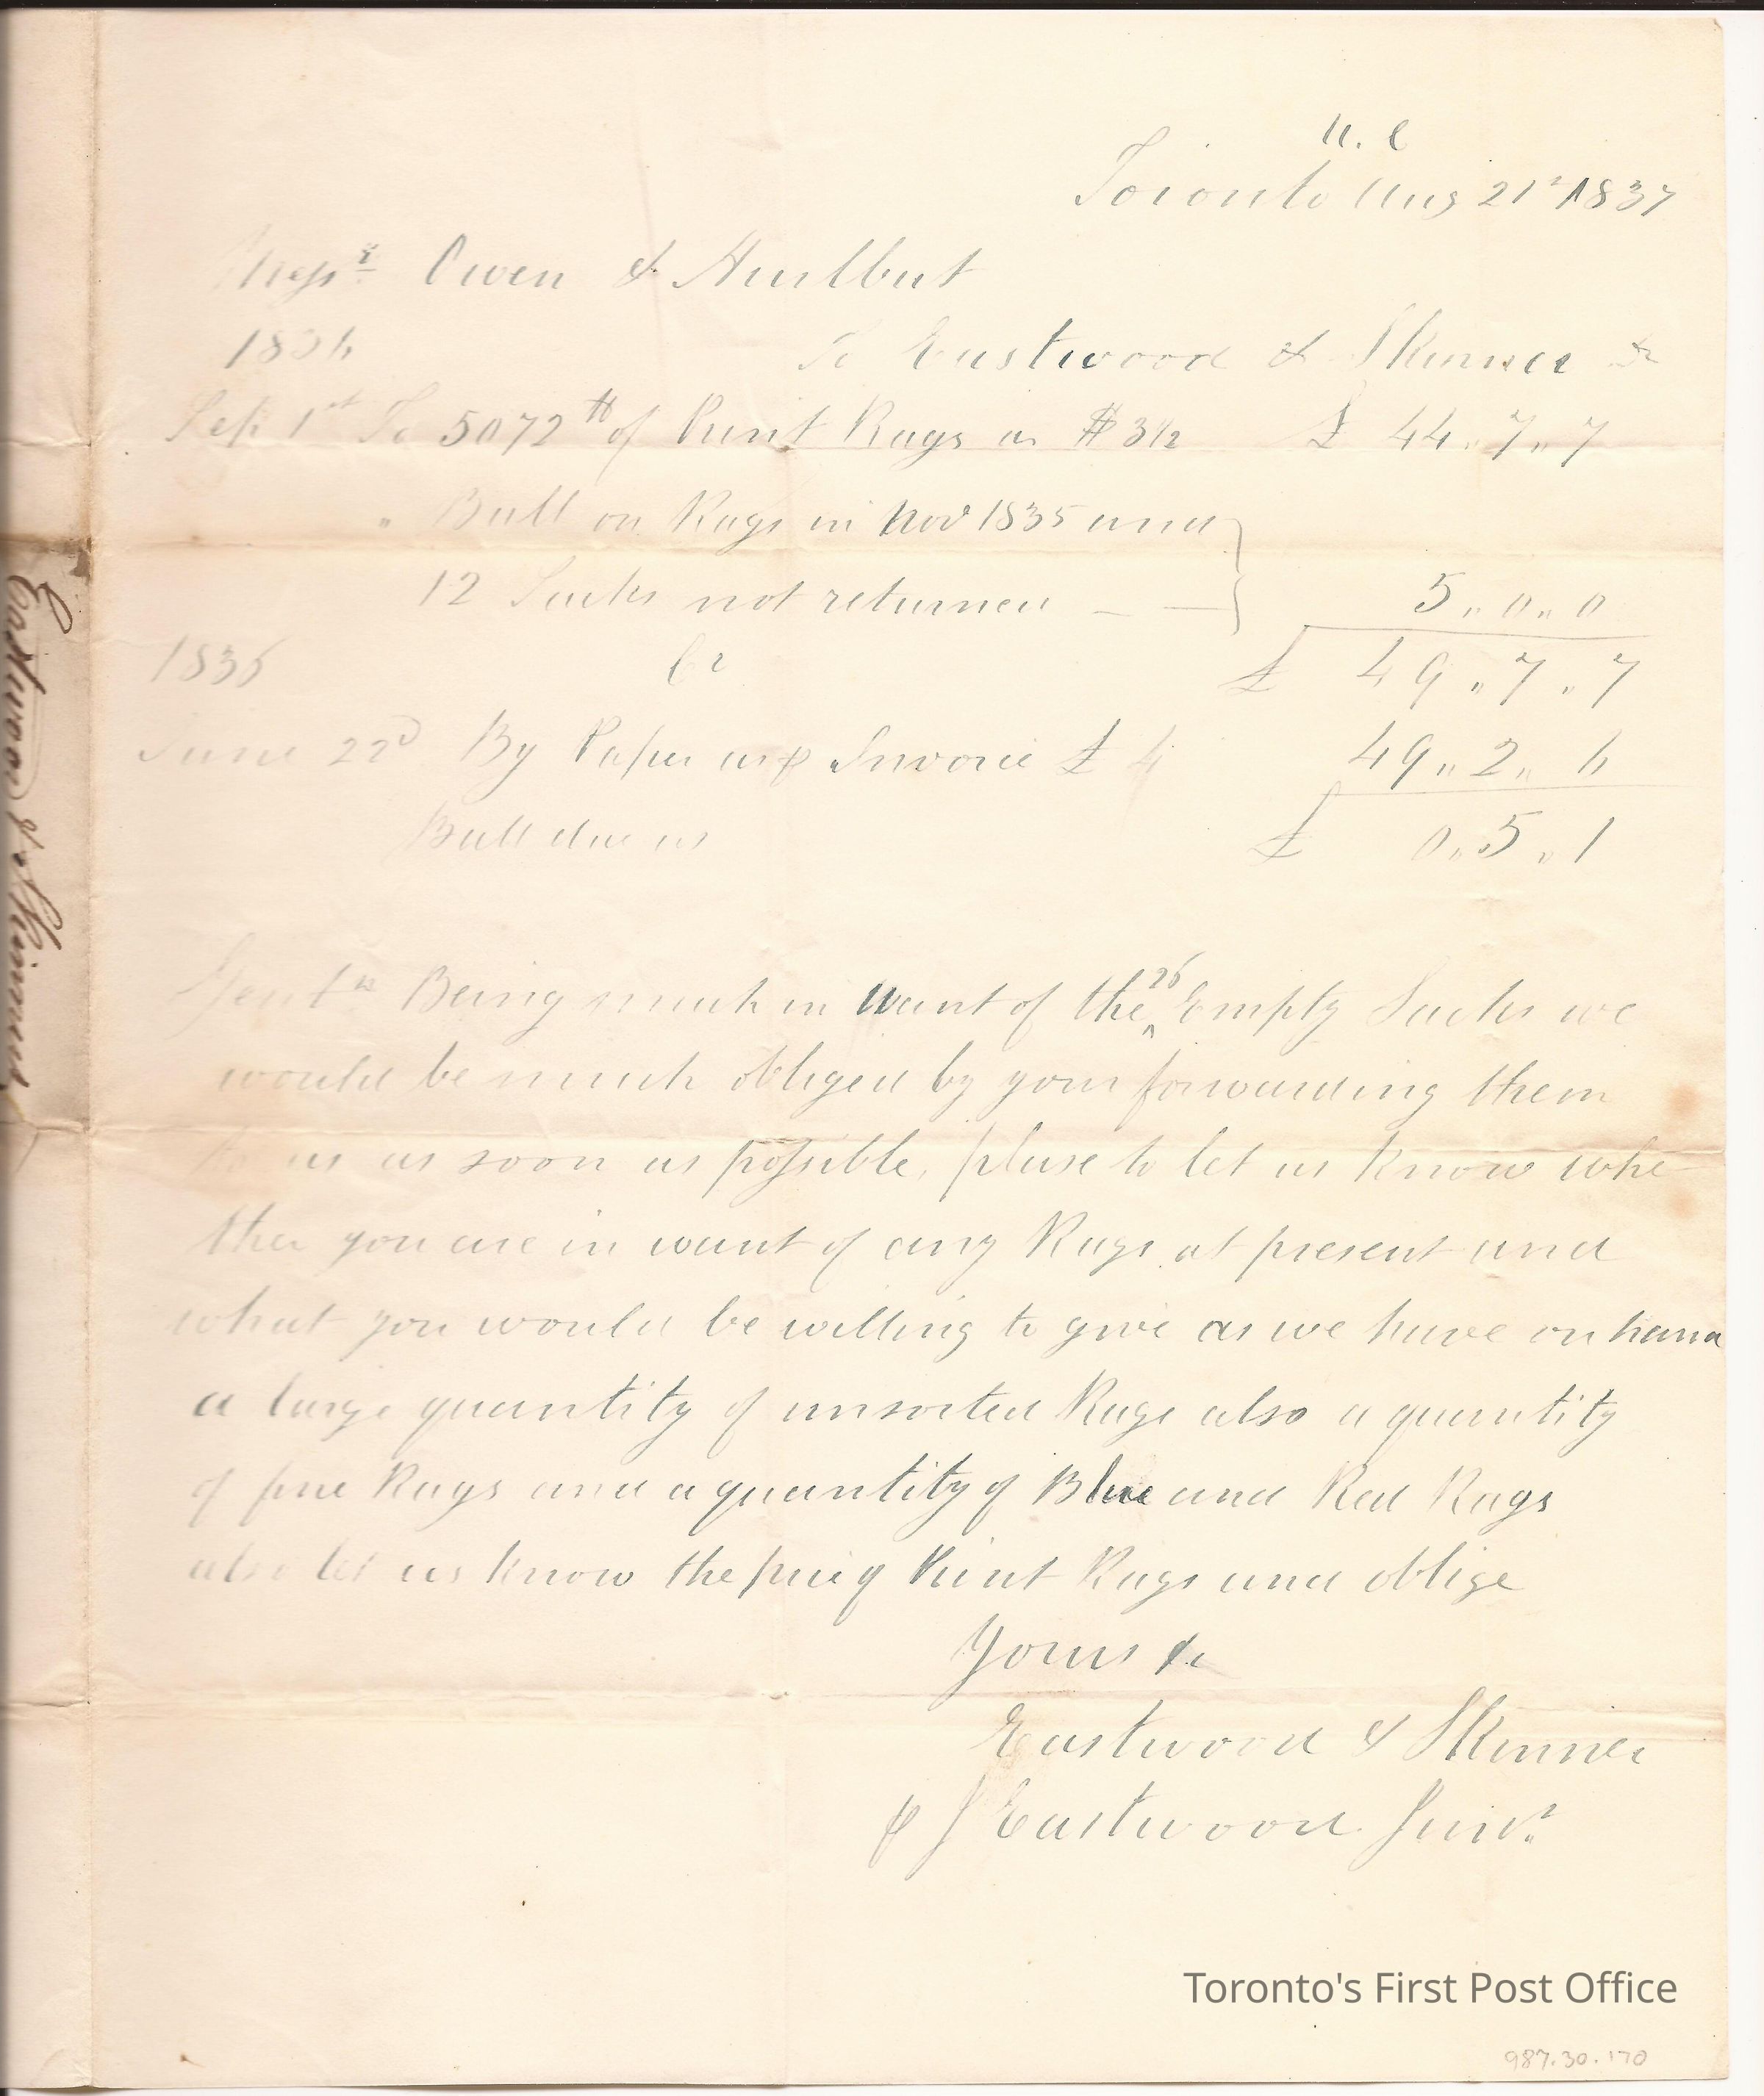 U. C
Toronto Aug 21st 1837
Messrs Owen & Hurlbut
1836 To Eastwood & Skinner Dr
Sep 1st To 5072 lb of Print Rags as $ 3 1/2 £ 44 " 7 " 7
" Ball on Rags in Nov 1835 and
12 Sacks not returned — — 5 " 0 " 0
1836 Cr £ 49 " 7 " 7
June 22d By Paper as p Invoice £ 49 " 2 " 6
Ball due us £ 0 " 5 " 1
Gentn Being much in want of the 26 Empty Sacks we
would be much obliged by your forwarding them
to us as soon as possible, please to let us know whe
ther you are in want of any Rags at present and
what you would be willing to give as we have on hand
a large quantity of unsorted Rags also a quantity
of fine Rags and a quantity of Blue and Red Rags
also let us know the price of Print Rags and oblige
Yours &c
Eastwood & Skinner
p J Eastwood Junr.
Eastwood & Skinner
Toronto's First Post Office
987.30.170